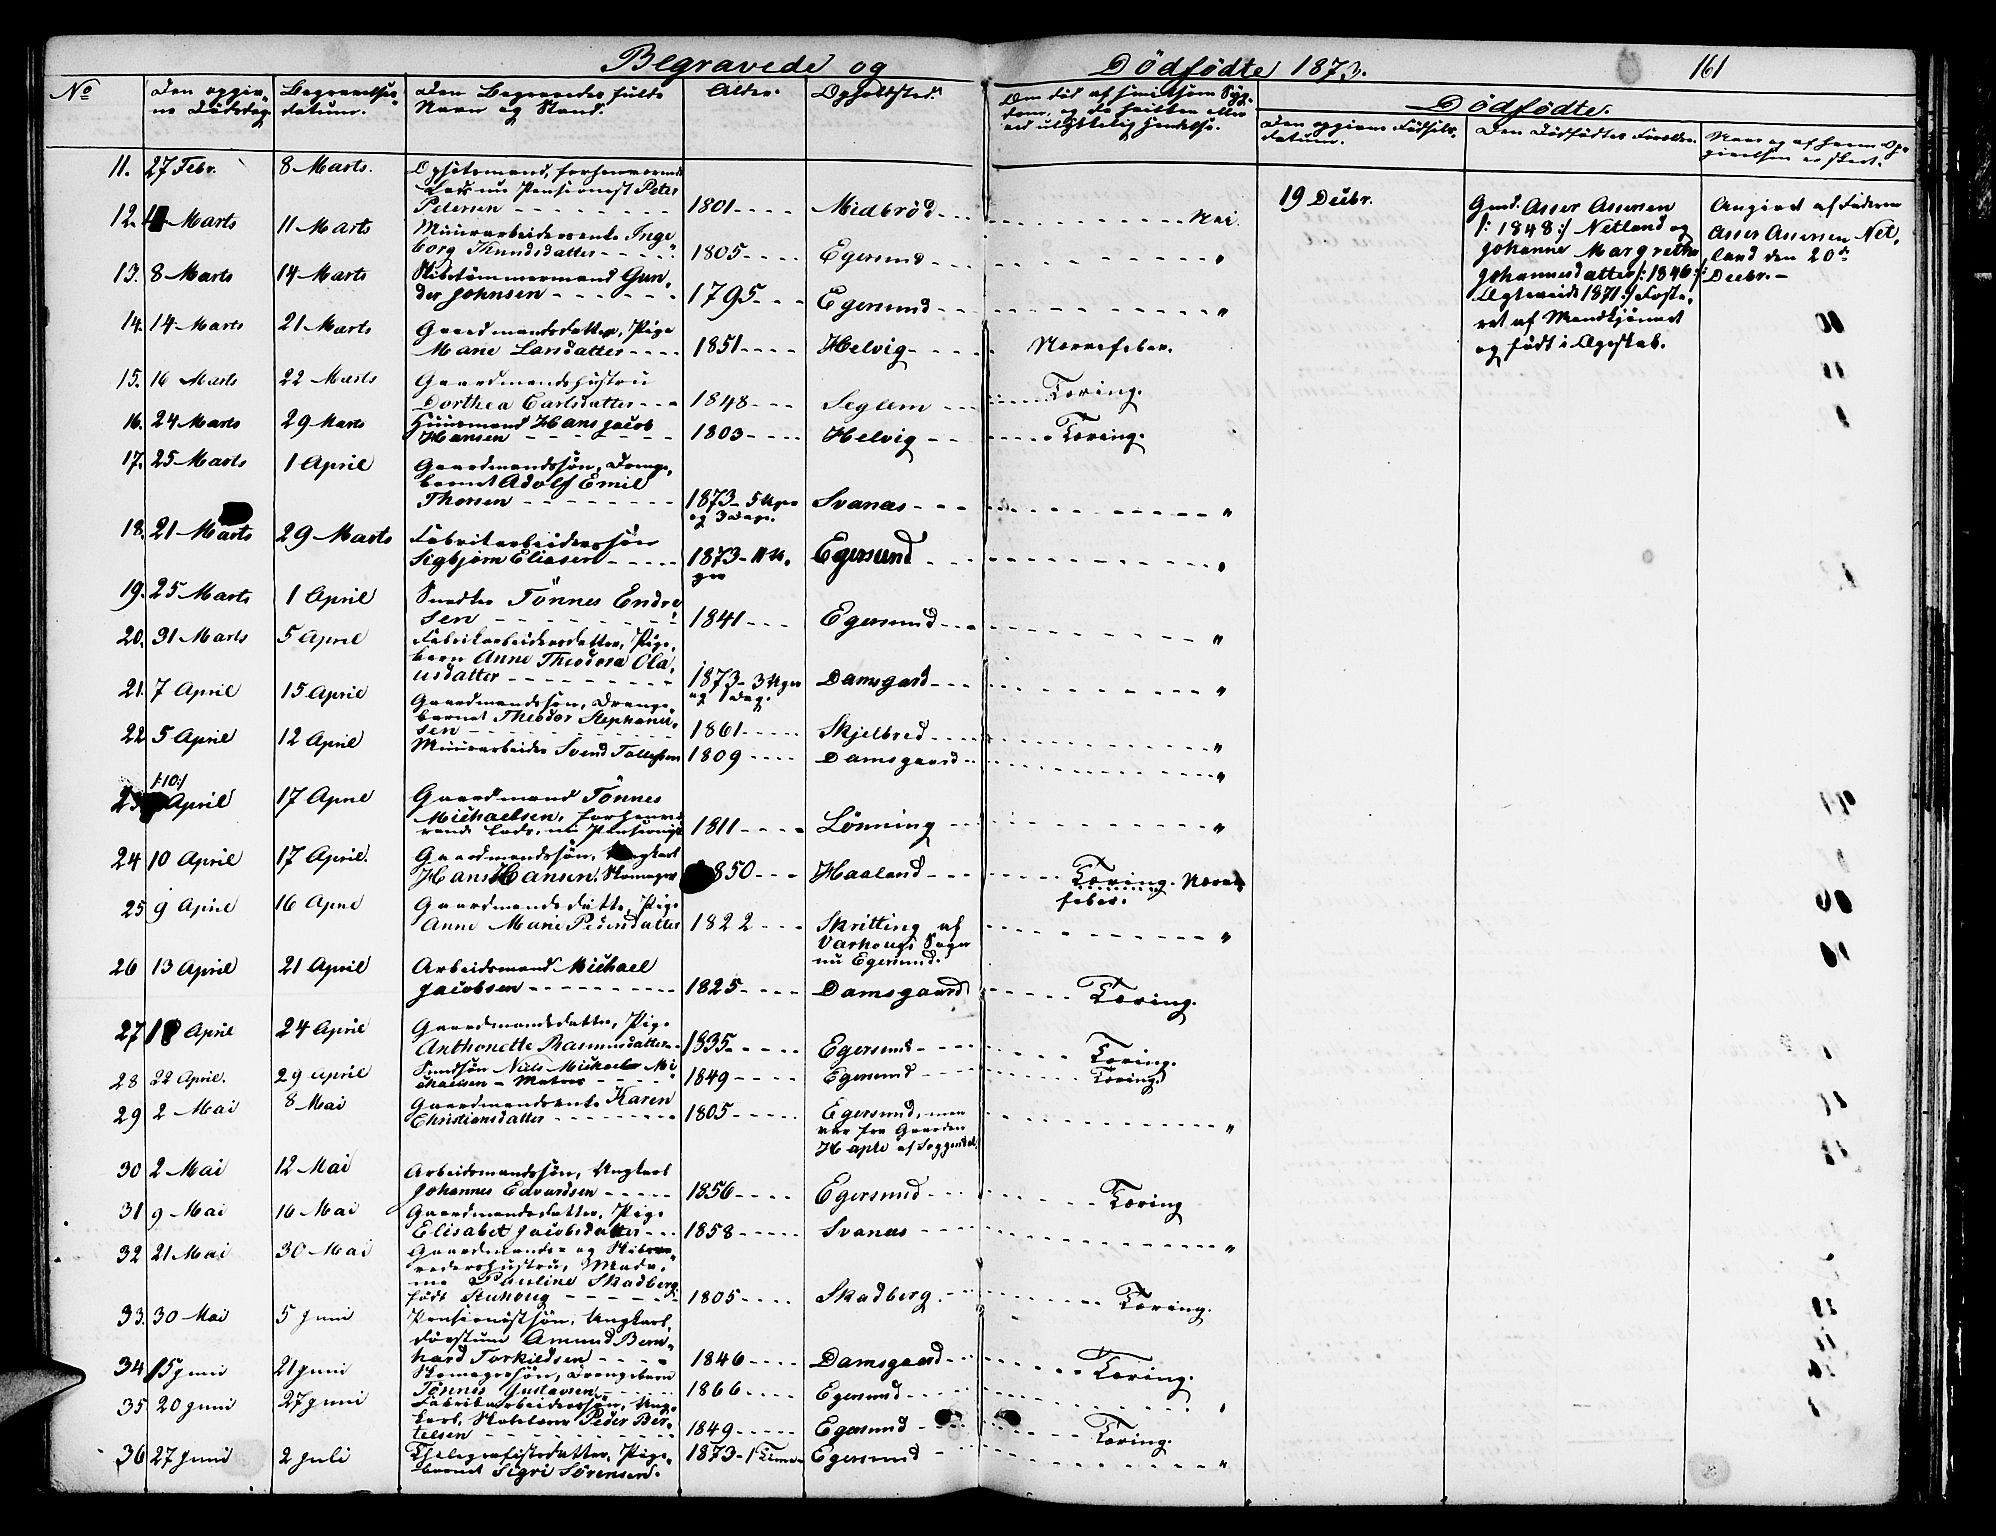 Begravede og Dödfødte 1873. 161
No Den opgivne Dødsdag. Begravelsesdatum. Den Begravedes fulde Navn og Stand. Alder. Opholdsted. Om død af smitsom Sygdom, og da hvilken eller ved ulykkelig Hendelse.
Dödfødte.
Den opgivne Fødselsdatum. Den Dødfødtes Forældre. Naar og af hvem Opgivelsen er skeet.
11. 27 Febr. 8 Marts.
Lods nu Pensionist Peter
Petersen 1801 Midbrød Nei
12. Marts 11 Marts Muurarbeiderenke Inge
borg Knudsdatter 1805 Egersund "
13. 8 Marts 14 Marts Skibstømmermand Gun
der Johnsen 1795 Egersund "
14. 14 Marts 21 Marts Gaardmandsdatter, Pige
Marie Larsdatter 1851 Helvig Nervefeber.
15. 16 Marts 22 Marts Gaardmandshustru
Dorthea Carlsdatter 1848 Seglem Tæring.
16. 24 Marts 29 Marts Huusmand Hans Jacob
Hansen 1803 Helvig Tæring.
17. 25 Marts 1 April Gaardmandssøn, Drenge
barnet Adolf Emil
Thorsen 1873 - 5 Uger Svanæs "
og 3 Dage.
18. 21 Marts 29 Marts Fabrikarbeiderssøn
Sigbjørn Eliasen 1873 - 11 U Egersund "
ger
19. 25 Marts 1 April Tønnes Endre
sen 1841 Egersund "
20. 31 Marts 5 April Fabrikarbeidersdatter, Pige
barn Anne Theodora Ola
usdatter 1873 - 3 Uger Damsgard "
og 1 Dag.
21. 7 April 15 April Gaardmandssøn, Drenge
barnet Theodor Stephan
sen 1861 Skjelbred "
22 5 April 12 April Muurarbeider Svend Tollefsen 1809 Damsgaard "
/:10:/
23 April 17 April Gaardmand Tönnes
Michaelsen, forhenvæ
rende Lods, nu Pensionist 1811 Lönning "
24 10 April 17 April. Gaardmandssøn, Ungkarl
Hans Hansen. Skomager 1850 Haaland Tæring. Nerve
feber.
25 9 April 16 April Gaardmandsdatter, Pige
Anne Marie Pedersdatter 1822 Skritting af "
Varhougs Sogn
nu Egersund.
26 13 April 21 April Arbeidsmand Michael
Jacobsen 1825 Damsgaard Tæring.
27 18 April 24 April Gaardmandsdatter, Pige
Anthonette Rasmusdatter 1835 Egersund Tæring.
28 22 April. 29 April Niels Michael Mi
chaelsen - Matros 1849 Egersund Tæring.
29 2 Mai 8 Mai Gaardmandsenke Karen
Christiansdatter 1805 Egersund, men "
var fra Gaarden
af Soggendal.
30 2 Mai 12 Mai Arbeidsmandssøn, Ungkarl
Johannes Edvardsen 1856 Egersund Tæring
31 9 Mai 16 Mai Gaardmandsdatter, Pige
Elisabet Jacobsdatter 1858 Svanæs "
32 21 Mai 30 Mai Gaardmands- og Skibs
rederhustru, Mada
me Pauline Skadberg
født Stuhoug 1805 Skadberg Tæring.
33. 30 Mai 5 Juni Pensionistsøn, Ungkarl,
Amund Bern
hard Torkildsen 1846 Damsgaard Tæring.
34 15 Juni 21 Juni Skomagersøn, Drengebarn
Tønnes Gustavsen 1866 Egersund "
35 20 Juni 27 Juni Fabrikarbeiderssøn, Ung
karl, Peder Ber
telsen 1849 Egersund Tæring.
36 27 Juni 2 Juli Thelegrafistdatter, Pige
barnet Sigri Sörensen. 1873 - 1 Time Egersund "
19 Decbr.
Gmd. Asser Assersen
/: 1848:/ Netland og
Johanne Margrethe
Johannesdatter /:1846:/
Ægteviede 1871:/ Foste
ret af Mandkjønnet
og født i Ægteskab.
Angivet af Faderen
Asser Assersen Net
land den 20de
Decbr. -